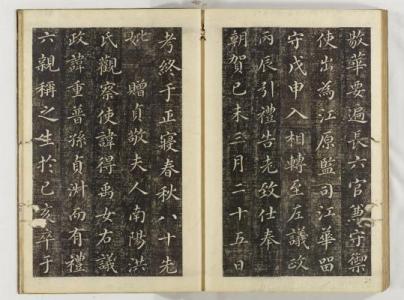 敭華要遍長六官兼守禦
使出為江原監司江華留
守戊申入相轉至左議政
丙辰引禮告老致仕奉
朝賀己未三月二十五日
考終于正寢春秋八十先
妣 贈貞敬夫人南陽洪
氏觀察使諱得禹女右議
政諱重普孫貞淑而有禮
六親稱之生於己亥卒于